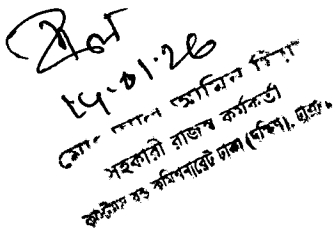 ১৫.০১.26
মোঃ আল আমিন মিয়া
সহকারী রাজস্ব কর্মকর্তা
কাস্টমস বন্ড কমিশনারেট ঢাকা (দক্ষিণ), ঢাকা।